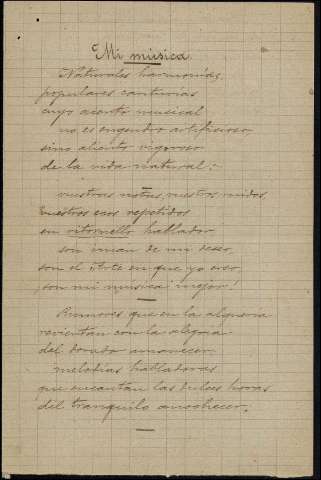 Mi música
Naturales harmonías,
populares canturias
cuyo acento musical
no es engendro artificioso
sino aliento vigoroso
de la vida natural:-
vuestras notas, vuestros ruidos,
vuestros ecos repetidos
en ritornello hablador
son iman de mi deseo,
son el Arte en que yo creo,
¡son mi musica mejor!
Rumores que en la alquería
revientan con la alegria
del dorado amanecer;
melodías habladoras
que encantan las dulces horas
del tranquilo anochecer.